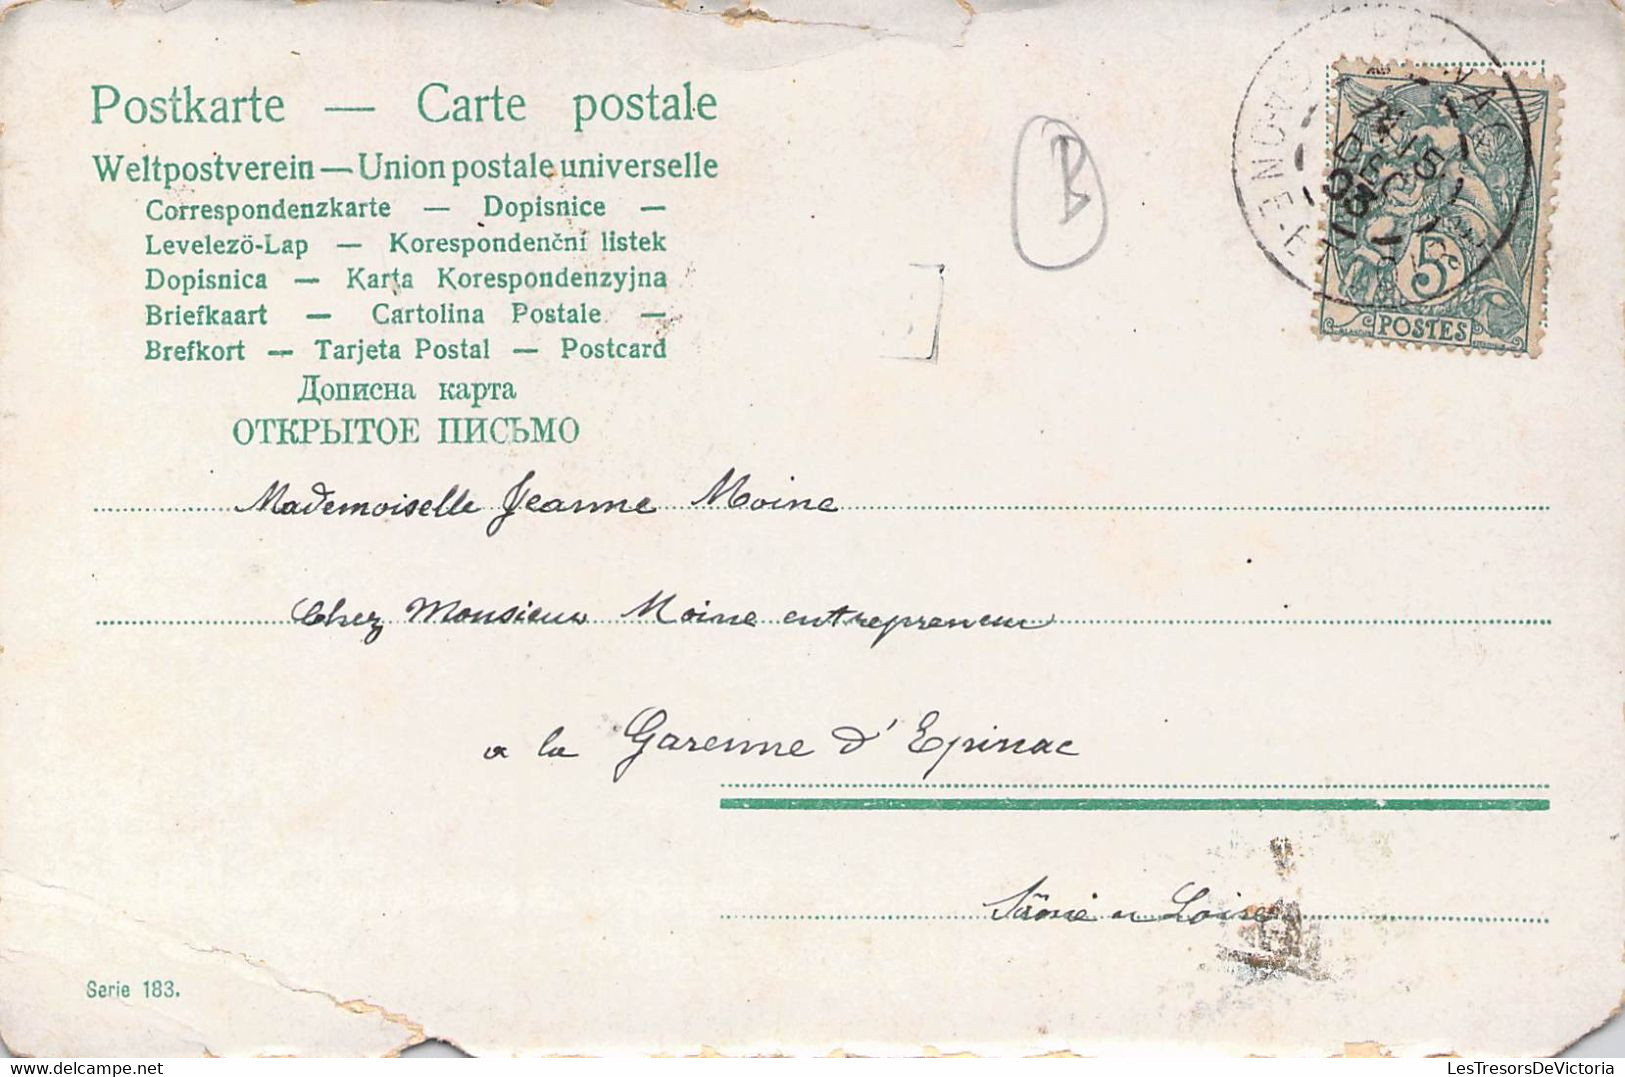 Postkarte — Carte postale
Weltpostverein — Union postale universelle
Correspondenzkarte — Dopisnice —
Levelezö-Lap — Korespondenční listek
Dopisnica — Karta Korespondenzyjna
Briefkaart — Cartolina Postale —
Brefkort — Tarjeta Postal — Postcard
Дописна карта
ОТКРЫТОЕ ПИСЬМО
B
5
POSTES
Mademoiselle Jeanne Moine
Chez Monsieur Moine entrepreneur
a la Garenne d'Epinac
Saône et Loire
Serie 183.
LesTresorsDeVictoria